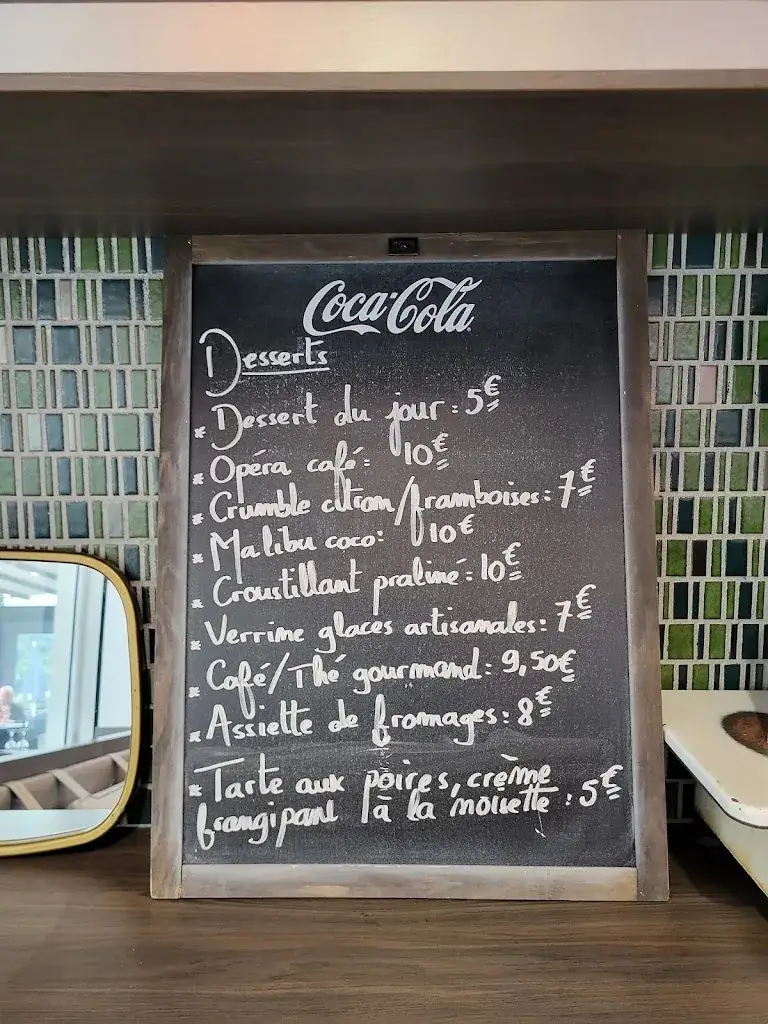 Coca-Cola
Desserts
* Dessert du jour : 5€
* Opéra café : 10€
* Crumble citron/framboises : 7€
* Malibu coco : 10€
* Croustillant praliné : 10€
* Verrine glaces artisanales : 7€
* Café/Thé gourmand : 9,50€
* Assiette de fromages : 8€
* Tarte aux poires, crème
frangipane à la noisette : 5€